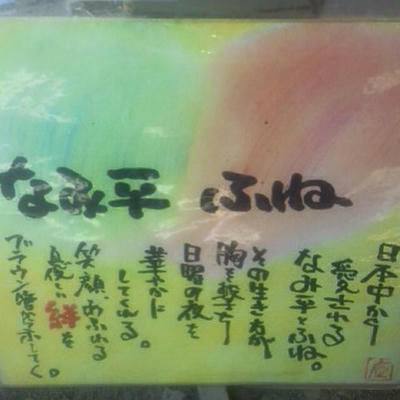 なみ平 ふね
日本中から
愛される
なみ平とふね。
その生き方が
胸を撃ち
日曜の夜を
華やかに
してくれる。
笑顔あふれる
良い絆を
ブラウン管から示してく